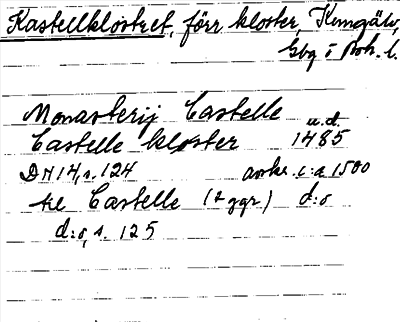 Kastellklostret, förr kloster, Kungälv,
Gbg o Boh. l.
Monasterij Castelle
u.d.
Castelle kloster 1485
DN 14, s. 124 avskr. c:a 1500
til Castelle (2 ggr.) d:o
d:o, s. 125